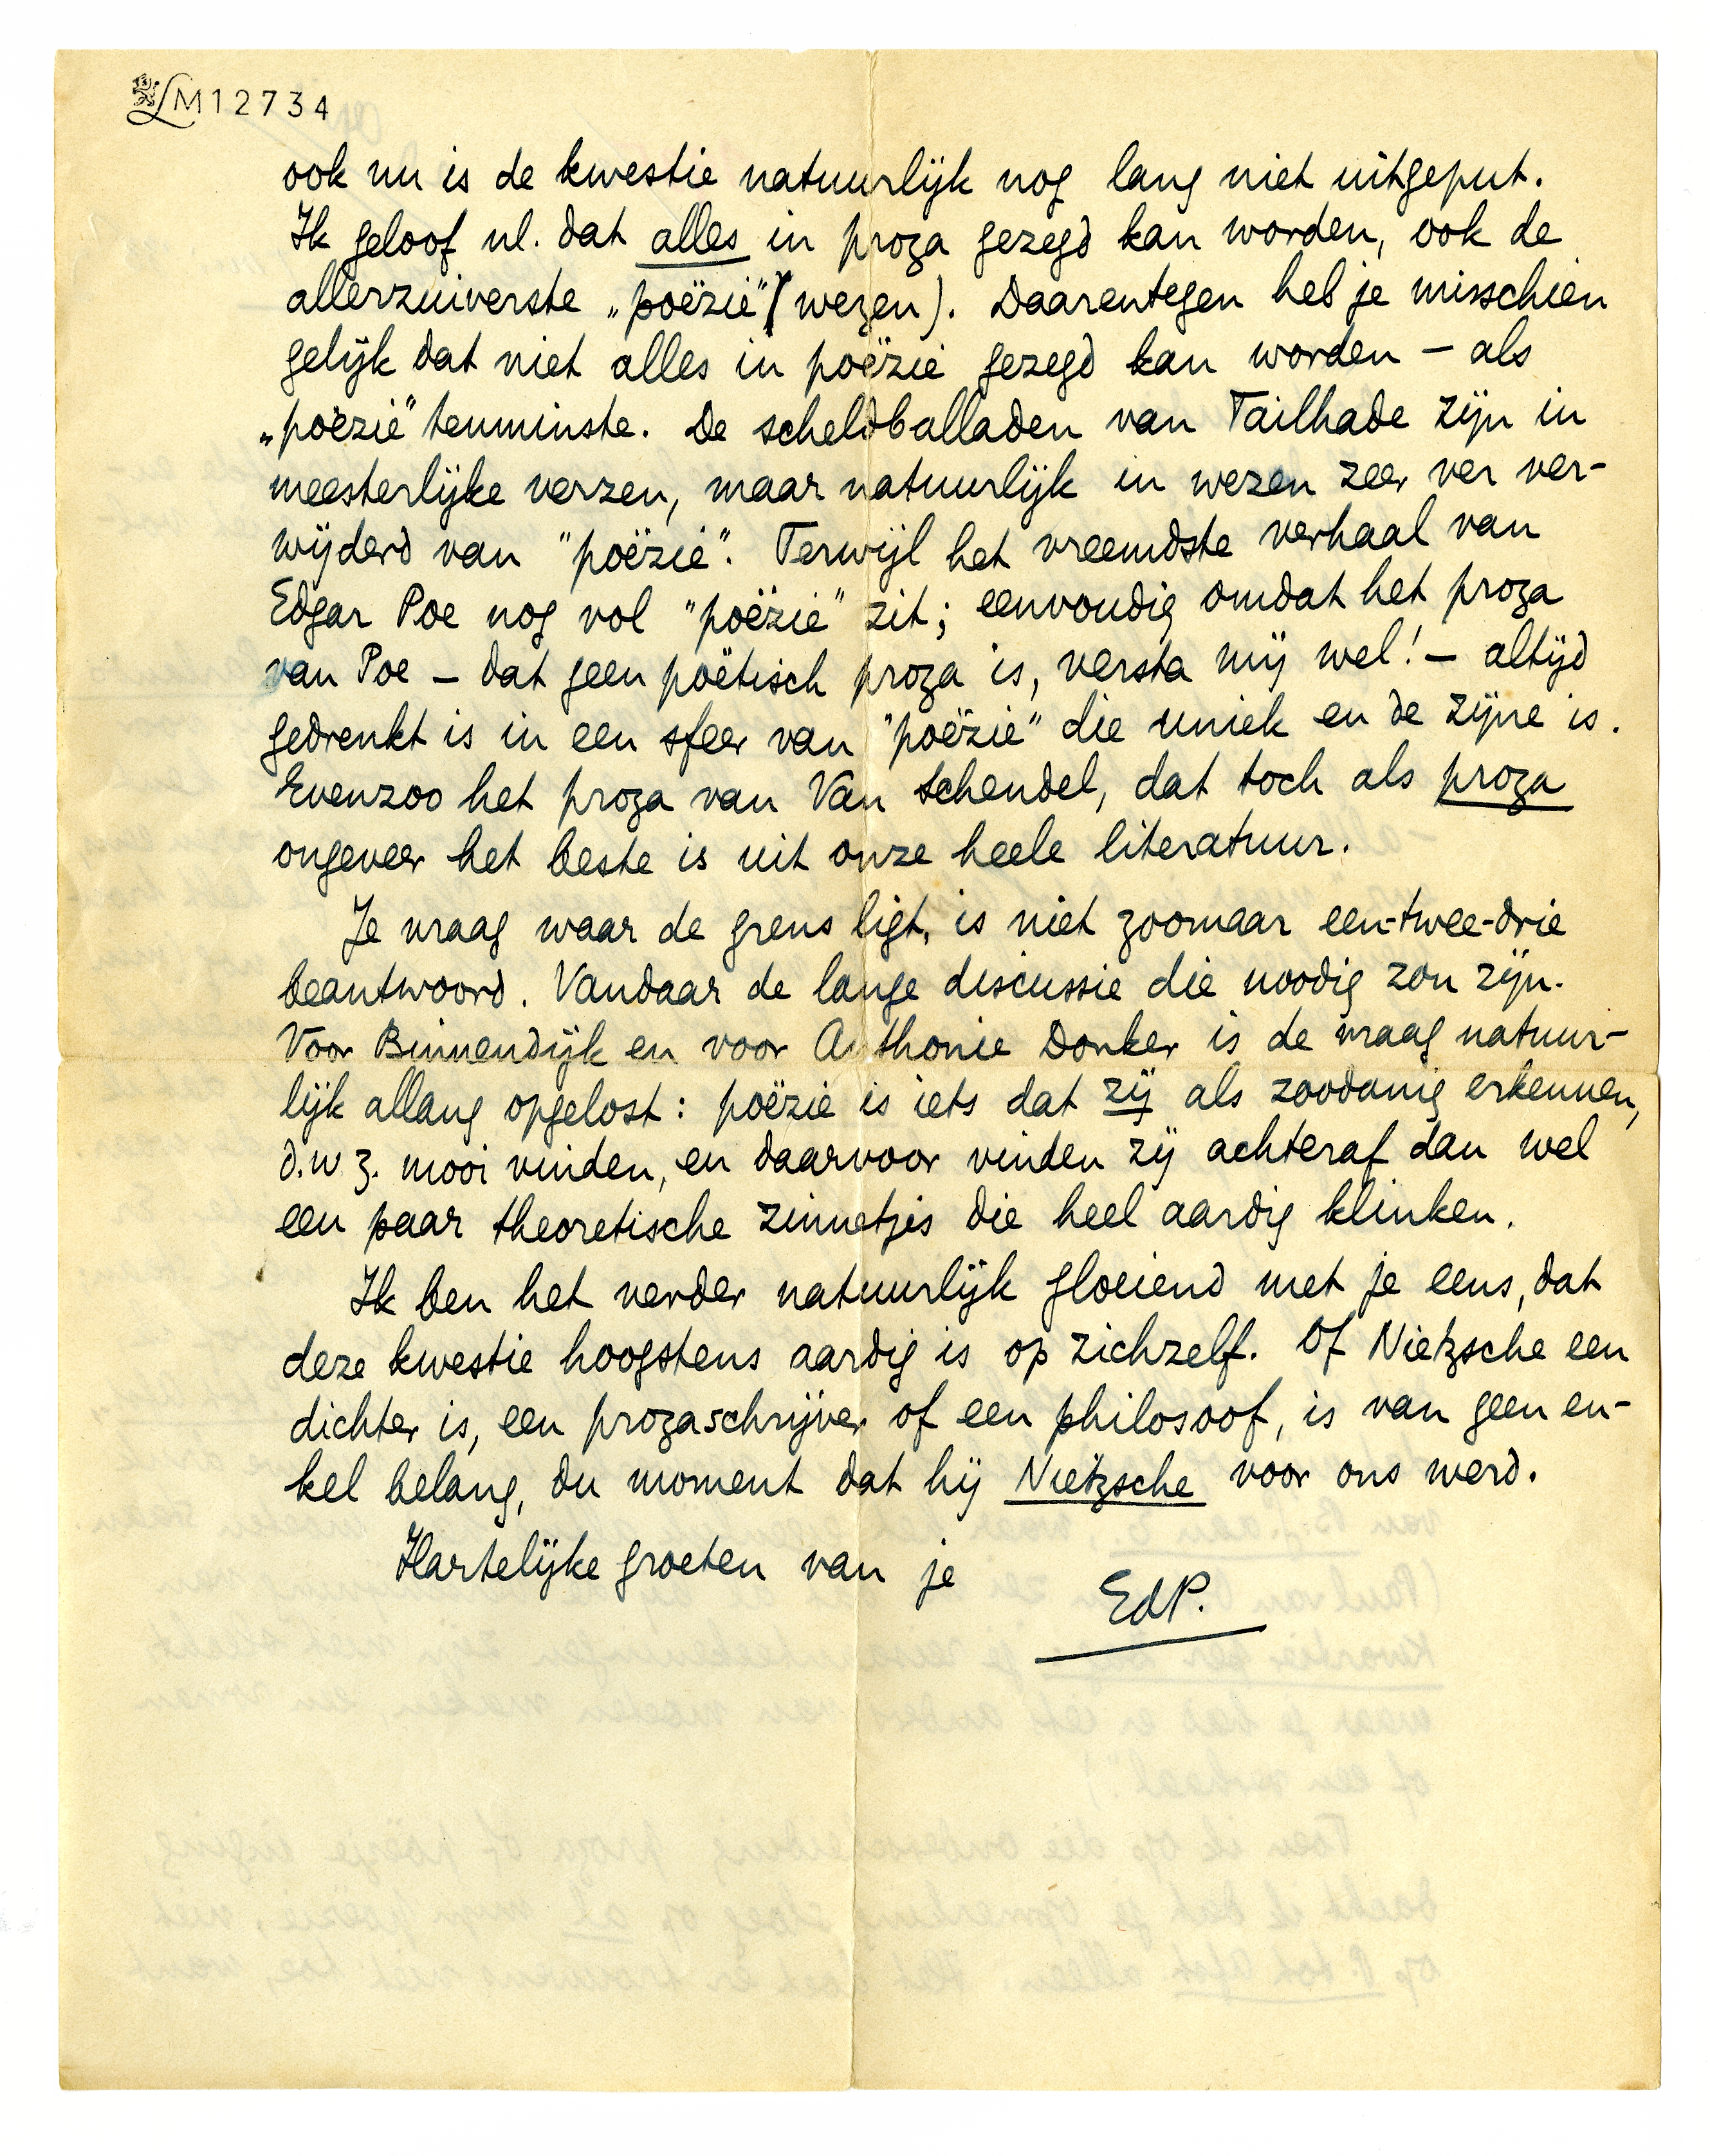 LM12734
ook nu is de kwestie natuurlijk nog lang niet uitgeput.
Ik geloof nl. dat alles in proza gezegd kan worden, ook de
allerzuiverste „poëzie" (wezen). Daarentegen heb je misschien
gelijk dat niet alles in poëzie gezegd kan worden – als
„poëzie" tenminste. De scheldballaden van Tailhade zijn in
meesterlijke verzen, maar natuurlijk in wezen zeer ver ver-
wijderd van "poëzie". Terwijl het vreemdste verhaal van
Edgar Poe nog vol "poëzie" zit; eenvoudig omdat het proza
van Poe – dat geen poëtisch proza is, versta mij wel! – altijd
gedrenkt is in een sfeer van "poëzie" die uniek en de zijne is.
Evenzoo het proza van Van Schendel, dat toch als proza
ongeveer het beste is uit onze heele literatuur.
Je vraag waar de grens ligt, is niet zoomaar een-twee-drie
beantwoord. Vandaar de lange discussie die noodig zou zijn.
Voor Binnendijk en voor Anthonie Donker is de vraag natuur-
lijk allang opgelost: poëzie is iets dat zij als zoodanig erkennen,
d.w.z. mooi vinden, en daarvoor vinden zij achteraf dan wel
een paar theoretische zinnetjes die heel aardig klinken.
Ik ben het verder natuurlijk gloeiend met je eens, dat
deze kwestie hoogstens aardig is op zichzelf. Of Nietzsche een
dichter is, een prozaschrijver of een philosoof, is van geen en-
kel belang, du moment dat hij Nietzsche voor ons werd.
Hartelijke groeten van je
EdP.